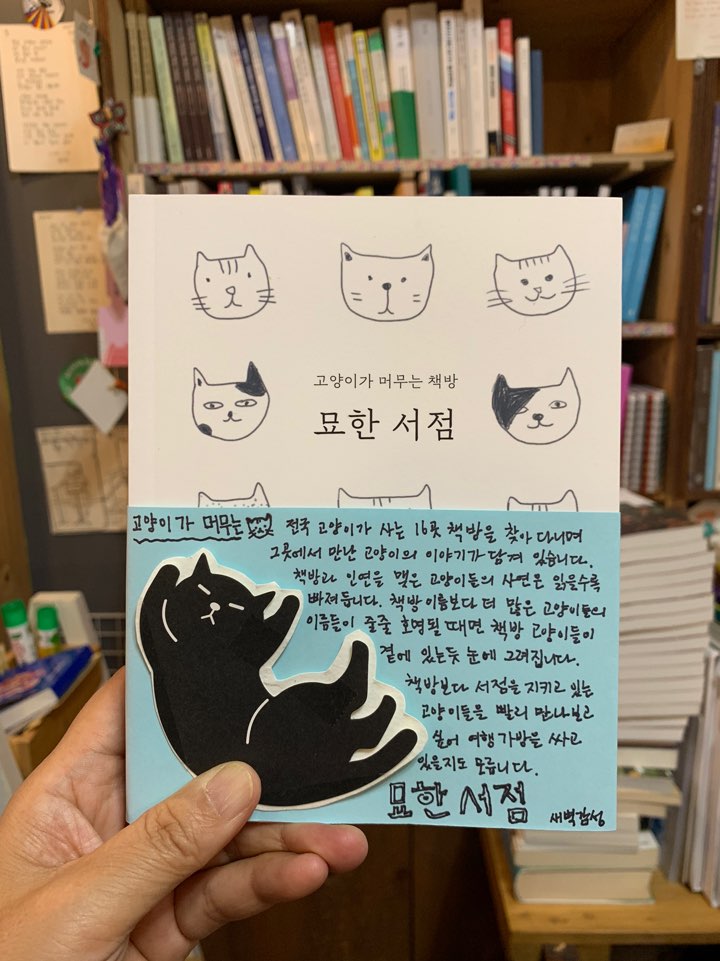 고양이가 머무는 책방
묘한 서점
고양이가 머무는
전국 고양이가 사는 16곳 책방을 찾아 다니며
그곳에서 만난 고양이의 이야기가 담겨 있습니다.
책방과 인연을 맺은 고양이들의 사연은 읽을수록
빠져듭니다. 책방 이름보다 더 많은 고양이들의
이름들이 줄줄 호명될 때면 책방 고양이들이
곁에 있는듯 눈에 그려집니다.
책방보다 서점을 지키고 있는
고양이들을 빨리 만나보고
싶어 여행 가방을 싸고
있을지도 모릅니다.
묘한 서점
새벽감성